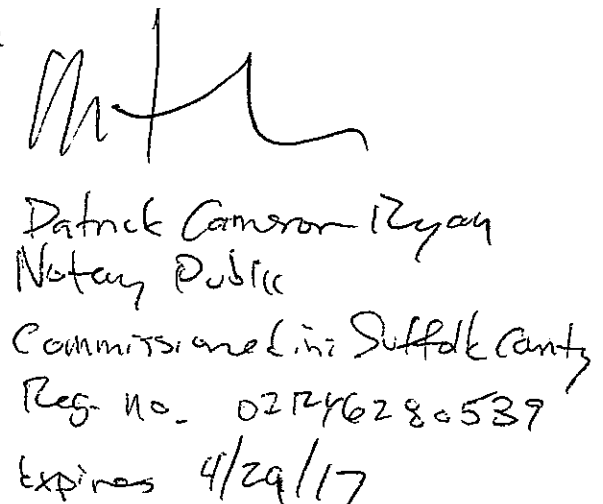 Patrick Cameron Ryan
Notary Public
Commissioned in Suffolk County
Reg. no. 02RY6280539
Expires 4/29/17